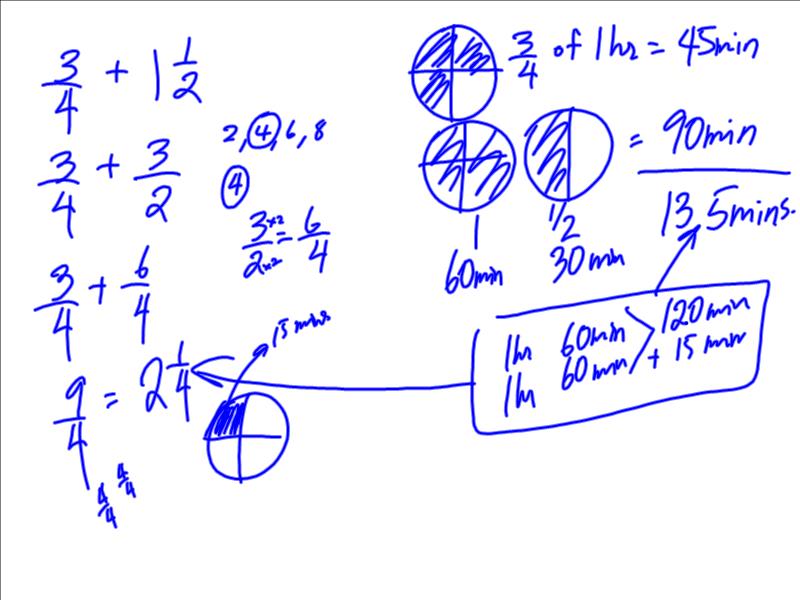 3/4 + 1 1/2
3/4 + 3/2
2, 4, 6, 8
4
3/2 ×2 ×2 = 6/4
3/4 + 6/4
9/4 = 2 1/4
15 mins
4/4 4/4
3/4 of 1hr = 45min
= 90min
1
1/2
60min
30min
135mins.
1hr 60min
1hr 60min
120min
+ 15min